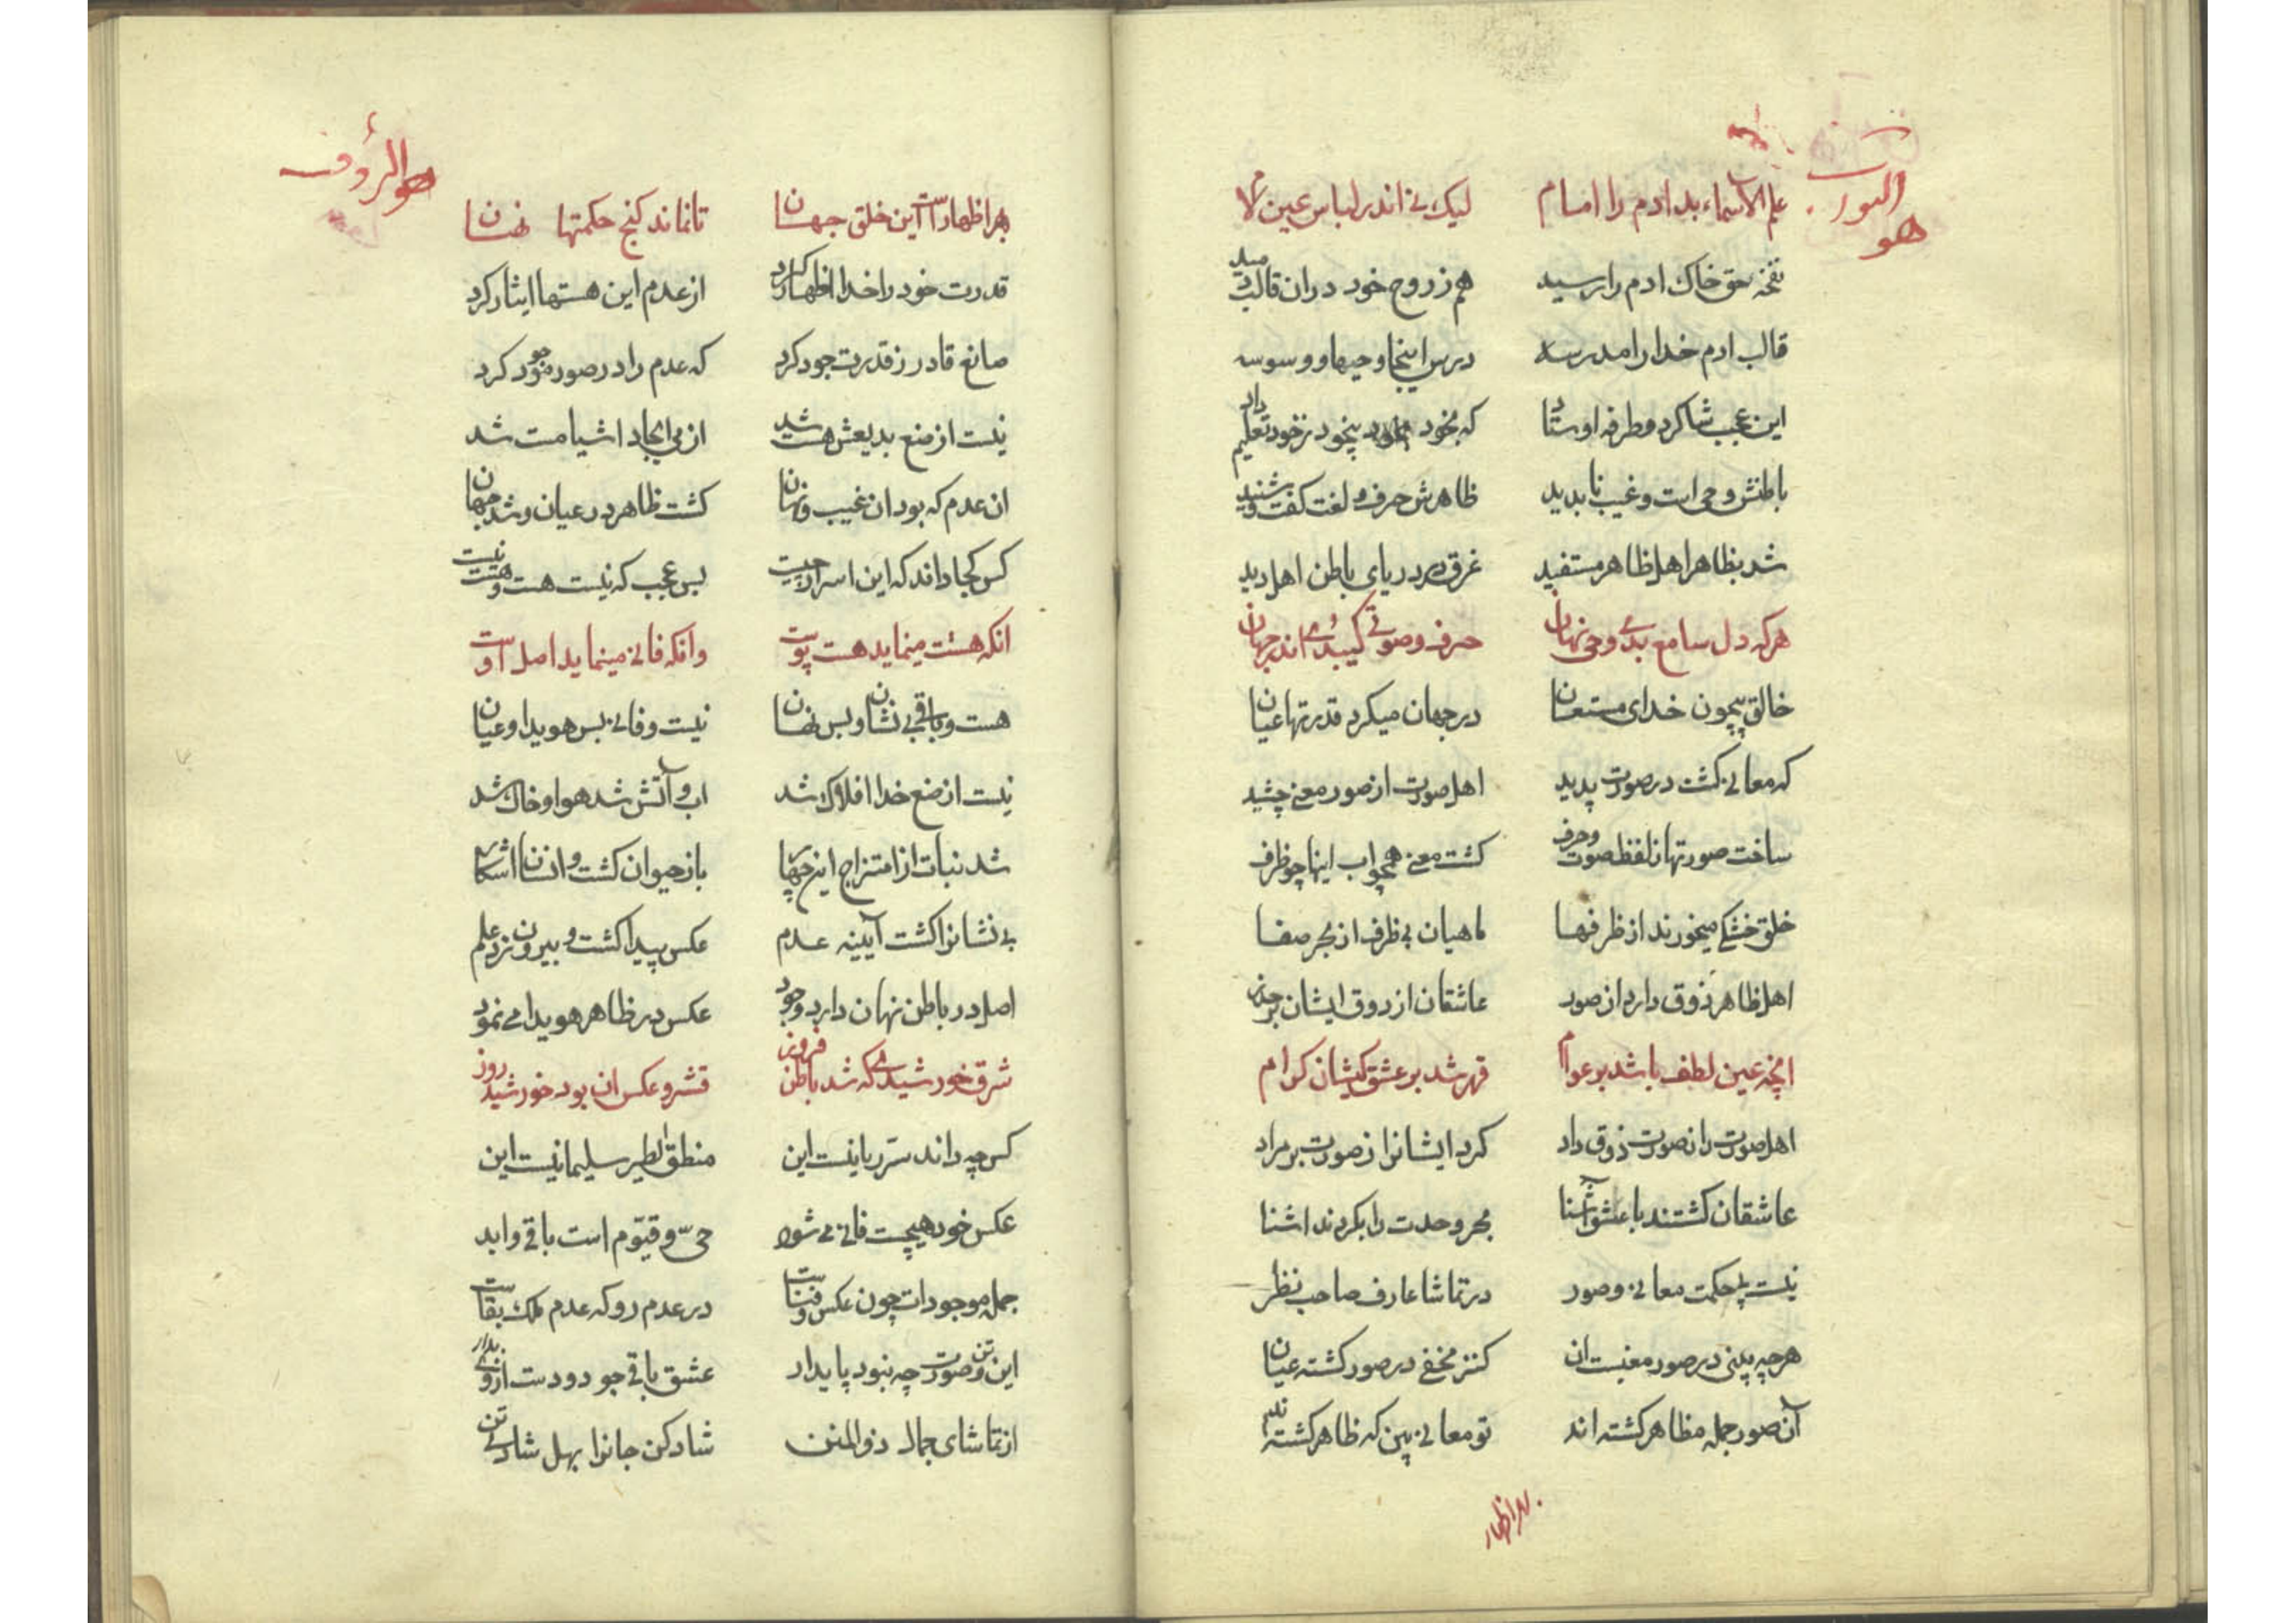 هو النور
علم الاسماء بد ادم را امام لیک نی اندر لباس عین و لام
نفخه حق خاک ادم را رسید هم ز روح خود دران قالب دمید
قالب ادم خدا را مدرسه درس اینجا وحیها و وسوسه
این عجب شاکرد و طرفه اوستاد که بخود بیخود ز خود تعلیم داد
باطنش وحی است و غیب نا بدید ظاهرش حرف و لغت کفت و شنید
شد بظاهر اهل ظاهر مستفید غرق در دریای باطن اهل دید
هرکه دل سامع بدی وحی نهان حرف و صوتی کی بدی اندر جهان
خالق بیچون خدای مستعان در جهان میکرد قدرتها عیان
که معانی کشت در صورت پدید اهل صورت از صور معنی چشید
ساخت صورتها ز لفظ و صوت و حرف کشت معنی همچو اب اینها چو ظرف
خلق خشکی میخورند از ظرفها ماهیان بی ظرف از بحر صفا
اهل ظاهر ذوق دارد از صور عاشقان از ذوق ایشان بر حذر
انچه عین لطف باشد بر عوام قهر شد بر عشق کیشان کرام
اهل صورت را ز صورت ذوق داد کرد ایشانرا ز صورت بر مراد
عاشقان کشتند با عشق آشنا بحر وحدت را بکردند اشنا
نیست بی حکمت معانی و صور در تماشا عارف صاحب نظر
هرچه بینی در صور معنیست ان کنز مخفی در صور کشته عیان
آن صور جمله مظاهر کشته اند تو معانی بین که ظاهر کشته اند
بهر اظهار
هو الرؤف
بهر اظهار است این خلق جهان تا نماند کنج حکمتها نهان
قدرت خود را خدا اظهار کرد از عدم این هستها ایثار کرد
صانع قادر ز قدرت جود کرد که عدم را در صور موجود کرد
نیست از صنع بدیعش هست شد از می ایجاد اشیا مست شد
ان عدم که بود ان غیب و نهان کشت ظاهر در عیان و شد جهان
کس کجا داند که این اسرار چیست بس عجب که نیست هست و هست نیست
انکه هست مینماید هست پوست وانکه فانی مینماید اصل اوست
هست و باقی بی نشان و بس نهان نیست و فانی بس هویدا و عیان
نیست از صنع خدا افلاک شد اب و آتش شد هوا و خاک شد
شد نبات از امتزاج این چهار باز حیوان کشت و انسان اشکار
بی نشانرا کشت آیینه عدم عکس پیدا کشت و بیرون زد علم
اصل در باطن نهان دارد وجود عکس در ظاهر هویدا می نمود
شرق خورشیدی که شد باطن فروز قشر و عکس ان بود خورشید روز
کس چه داند سر ربانیست این منطق الطیر سلیمانیست این
عکس خود هیچست فانی می شود حی و قیوم است باقی و ابد
جمله موجودات چون عکس و فناست در عدم رو که عدم ملک بقاست
این تن و صورت چه نبود پایدار عشق باقی جو دو دست از وی بدار
از تماشای جمال ذو المنن شاد کن جانرا بهل شادی تن